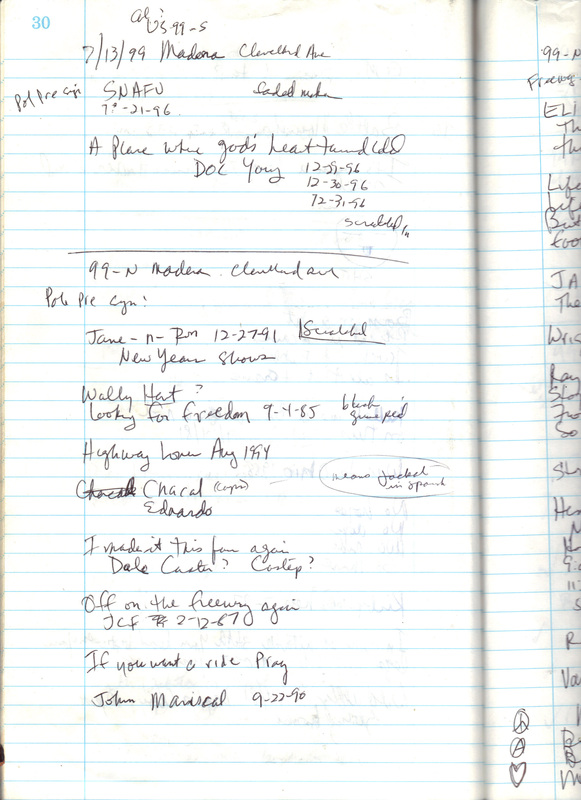 30
US 99-S
7/13/99 Madera Cleveland Ave
SNAFU
-21-96
A Place where god's heart turned cold
DOC Young 12-29-96
12-30-96
12-31-96
scrabbled
99-N Madera Cleveland ave
Pole Pre Cyn:
Jane-n-Ron 12-27-91 Scrabbled
New Year Shows
Wally Hart ?
Looking for freedom 9-4-85 black
Highway Lover Aug 1994
Chacal
means jackal
in spanish
Edoardo
I made it this far again
Dale Caster? Castep?
Off on the freeway again
JCF 2-12-87
If you want a ride Pray
John Mariscal 9-22-90
99-N
Freeway
ELI
Th
th
Life
But
foo
JA
The
Wris
Ray
So
R
Va
A